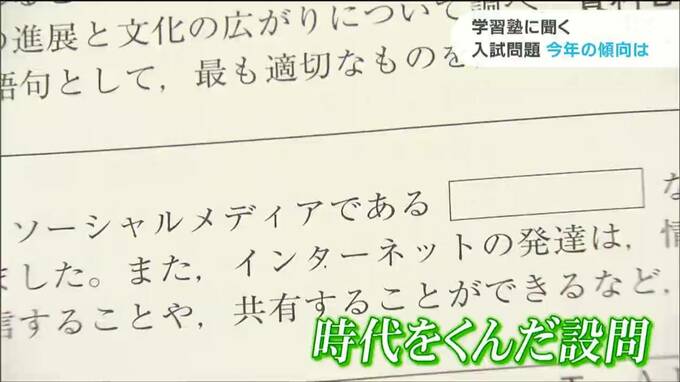 学習塾に聞く
入試問題 今年の傾向は
進展と文化の広がりについて
語句として，最も適切なものを
ソーシャルメディアである
ました。また，インターネットの発達は，情
信することや，共有することができるなど，
時代をくんだ設問